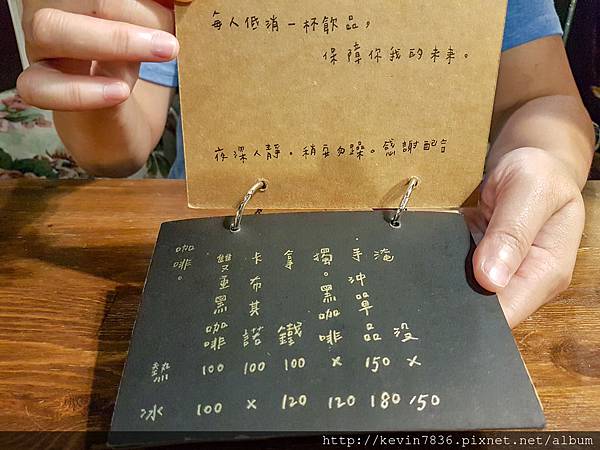 每人低消一杯飲品，
保障你我的未來。
夜深人靜。稍安勿躁。感謝配合
咖啡。
雙重黑咖啡
卡布其諾
拿鐵
獨。黑咖啡
手沖單品
淹沒
熱 100 100 100 × 150 ×
冰 100 × 120 120 180 150
http://kevin7836.pixnet.net/album